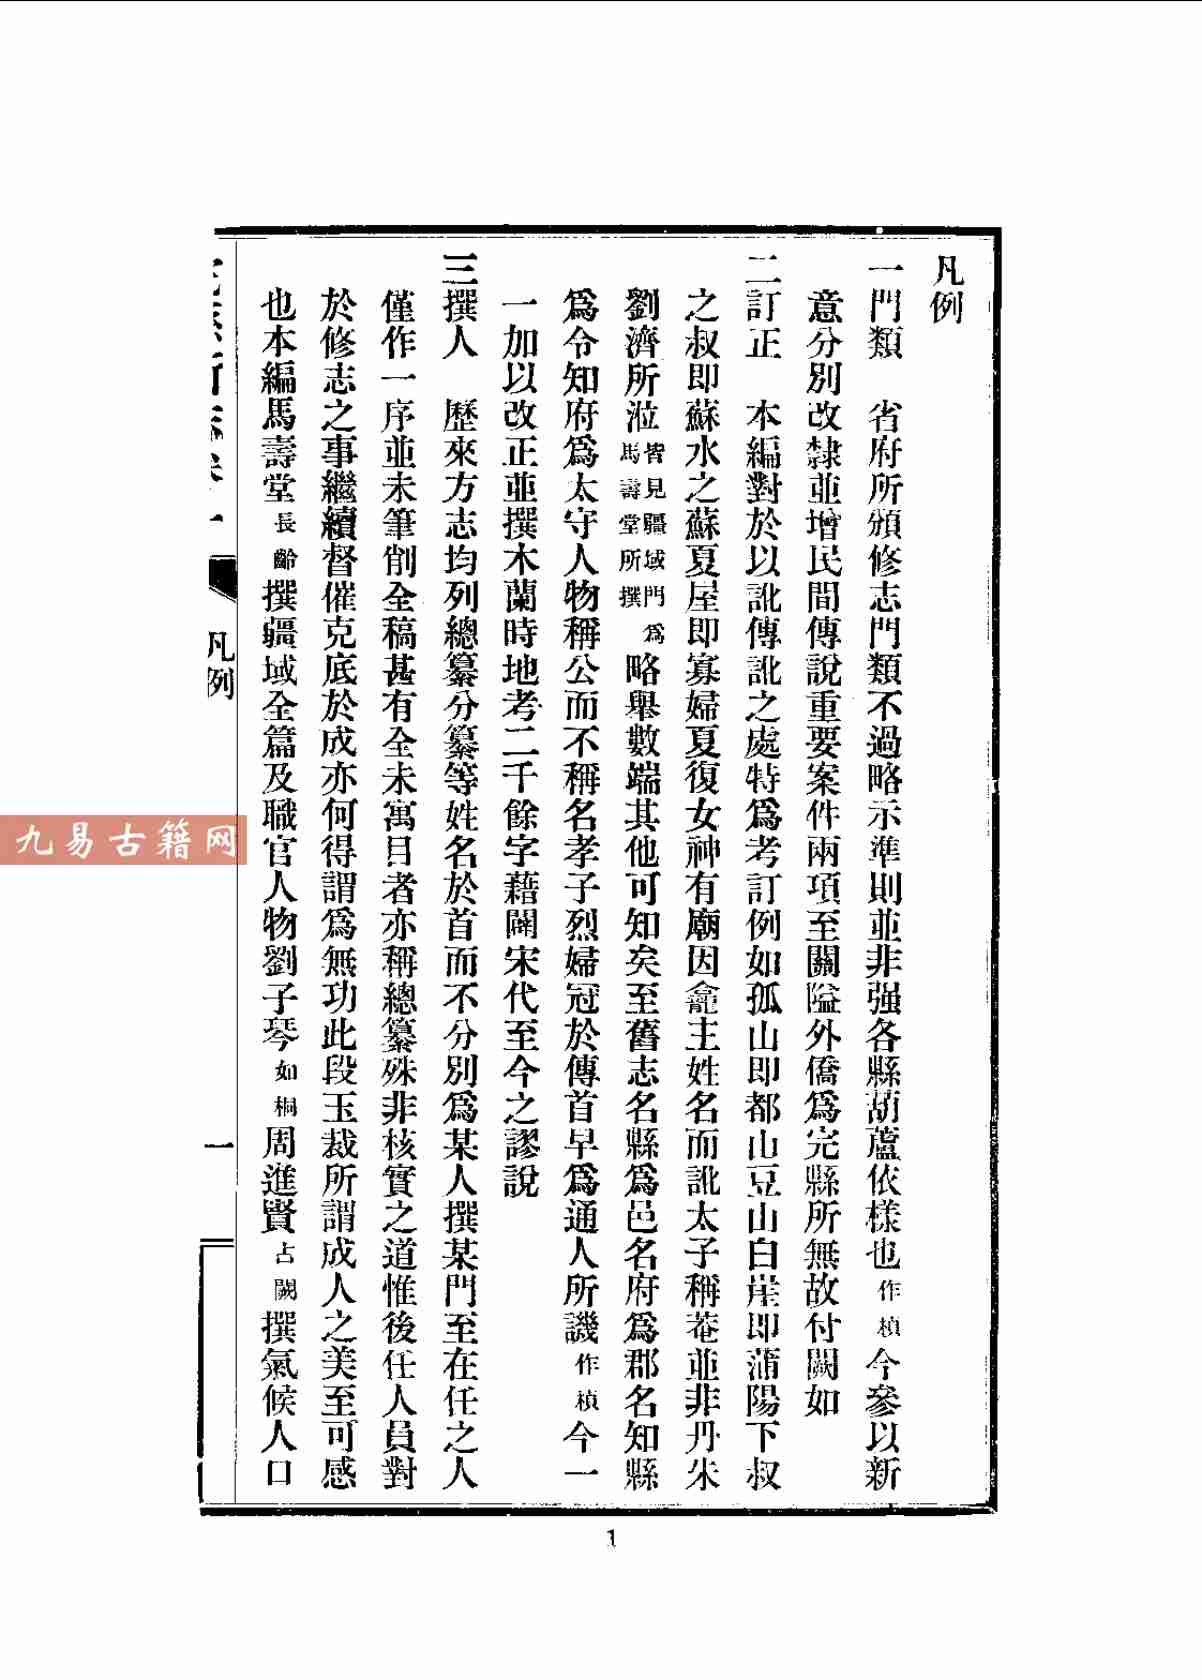 凡例
一門類　省府所頒修志門類不過略示準則並非强各縣葫蘆依樣也作楨今參以新
意分別改隸並增民間傳說重要案件兩項至關隘外僑爲完縣所無故付闕如
二訂正　本編對於以訛傳訛之處特爲考訂例如孤山即都山豆山白崖即蒲陽下叔
之叔即蘇水之蘇夏屋即寡婦夏復女神有廟因龕主姓名而訛太子稱菴並非丹朱
劉濟所涖皆見疆域門爲馬壽堂所撰略舉數端其他可知矣至舊志名縣爲邑名府爲郡名知縣
爲令知府爲太守人物稱公而不稱名孝子烈婦冠於傳首早爲通人所譏作楨今一
一加以改正並撰木蘭時地考二千餘字藉闢宋代至今之謬說
三撰人　歷來方志均列總纂分纂等姓名於首而不分別爲某人撰某門至在任之人
僅作一序並未筆削全稿甚有全未寓目者亦稱總纂殊非核實之道惟後任人員對
於修志之事繼續督催克底於成亦何得謂爲無功此段玉裁所謂成人之美至可感
也本編馬壽堂長齡撰疆域全篇及職官人物劉子琴如桐周進賢占闕撰氣候人口
凡例
一
1
九易古籍网